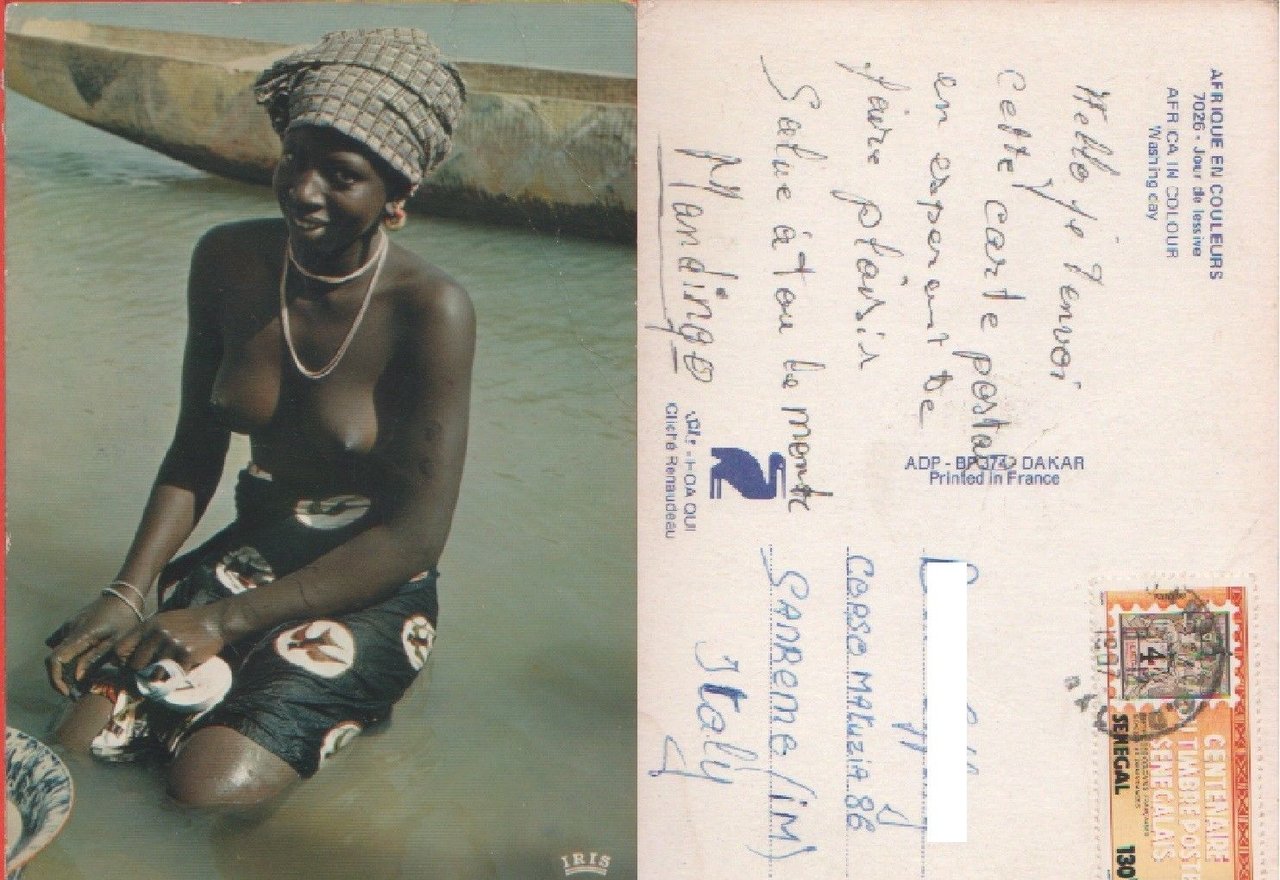 IRIS
AFRIQUE EN COULEURS
7026 - Jour de lessive
AFRICA IN COLOUR
Washing day
Hello je t'envoi
cette carte postal
en esperant te
faire plaisir
Salue à tou le monde
Mandingo
HOA QUI
Cliché Renaudeau
ADP - BP 374 - DAKAR
Printed in France
CORSO MATUZIA 86
SANREMO (IM)
Italy
1987
4
CENTENAIRE
TIMBRE POSTE
SENEGALAIS
SENEGAL
130